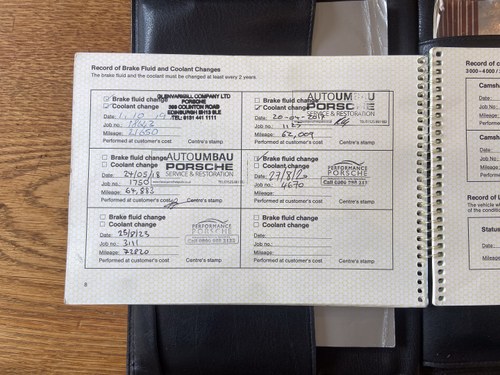 Record of Brake Fluid and Coolant Changes
The brake fluid and the coolant must be changed at least every 2 years
Brake fluid change
Coolant change
Date:
Job no.:
Mileage: 21650
Performed at customer's cost
Centre's stamp
GLENVARIGILL COMPANY LTD
PORSCHE
EDINBURGH
TEL: 0131 441 1111
Brake fluid change
Coolant change
Date:
Job no.: 1127
Mileage: 62,009
Performed at customer's cost
Centre's stamp
AUTOUMBAU
PORSCHE
SERVICE & RESTORATION
Brake fluid change
Coolant change
Date: 24/05/18
Job no.: 1750
Mileage: 64,883
Performed at customer's cost
Centre's stamp
AUTOUMBAU
PORSCHE
SERVICE & RESTORATION
Brake fluid change
Coolant change
Date:
Job no.: 4670
Mileage:
Performed at customer's cost
Centre's stamp
PERFORMANCE
PORSCHE
Brake fluid change
Coolant change
Date: 25/8/23
Job no.: 3111
Mileage: 72820
Performed at customer's cost
Centre's stamp
PERFORMANCE
PORSCHE
Brake fluid change
Coolant change
Date:
Job no.:
Mileage:
Performed at customer's cost
Centre's stamp
8
Record of
Camsha
Date:
Job no.:
Mileage:
Performed
Camsha
Date:
Job no.:
Mileage:
Performed
Record of U
The vehicle
of the condi
Status
Date:
Job no.:
Mileage: